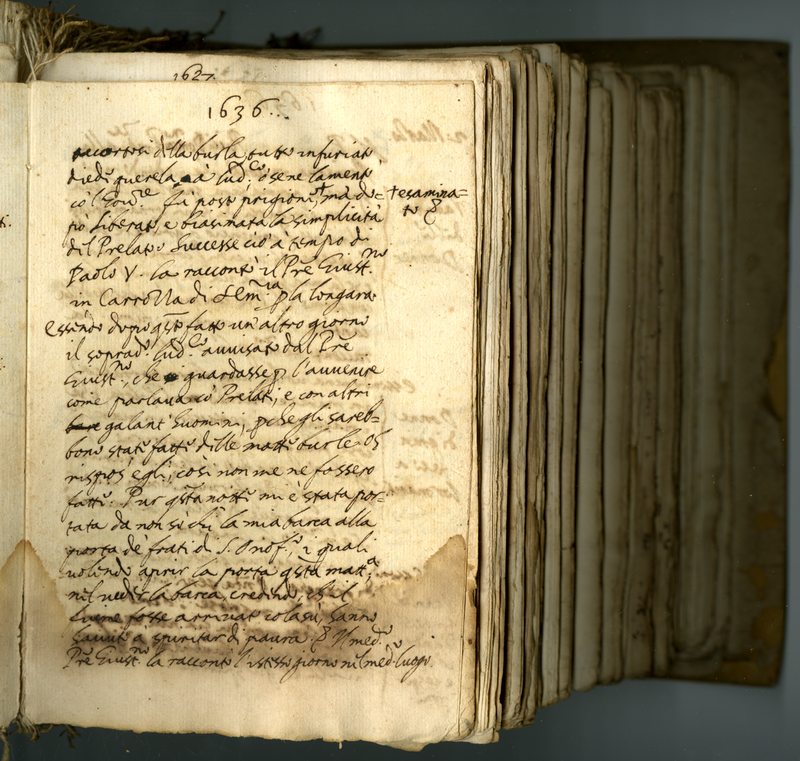 1627.
1636...
accortosi della burla, tutto infuriato
diede querela à Lud.co ò se ne lamentò
cò l'Gou.re Fù posto prigione, † mà do=
† esamina=
to &
pò liberato, e biasimata la simplicità
del Prelato. Successe ciò à tempo di
Paolo V. la raccontò il Pre Giust.no
in Carrozza di Sem.ria p la longara.
Essendo dopo qsto fatto un altro giorno
il soprad.o Lud.co auuisato dal Pre
Giust.no, che guardasse p l'auuenire
come parlaua cò Prelati, e con altri
galant'huomini, pche gli sareb=
bono state fatte delle matte burle. Oh
rispos' egli, così non me ne fossero
fatte. Pur qsta notte mi è stata por=
tata da non sò chi la mia barca alla
porta de frati di S. Onof.o, i quali
uolendo aprir la porta qsta matt.a
nel ueder la barca, credendo, ch' il
fiume fosse arriuato colasù, hanno
hauuto à spiritar di paura. & Il med.o
Pre Giust.no la raccontò l'istesso giorno nel med.o luogo.